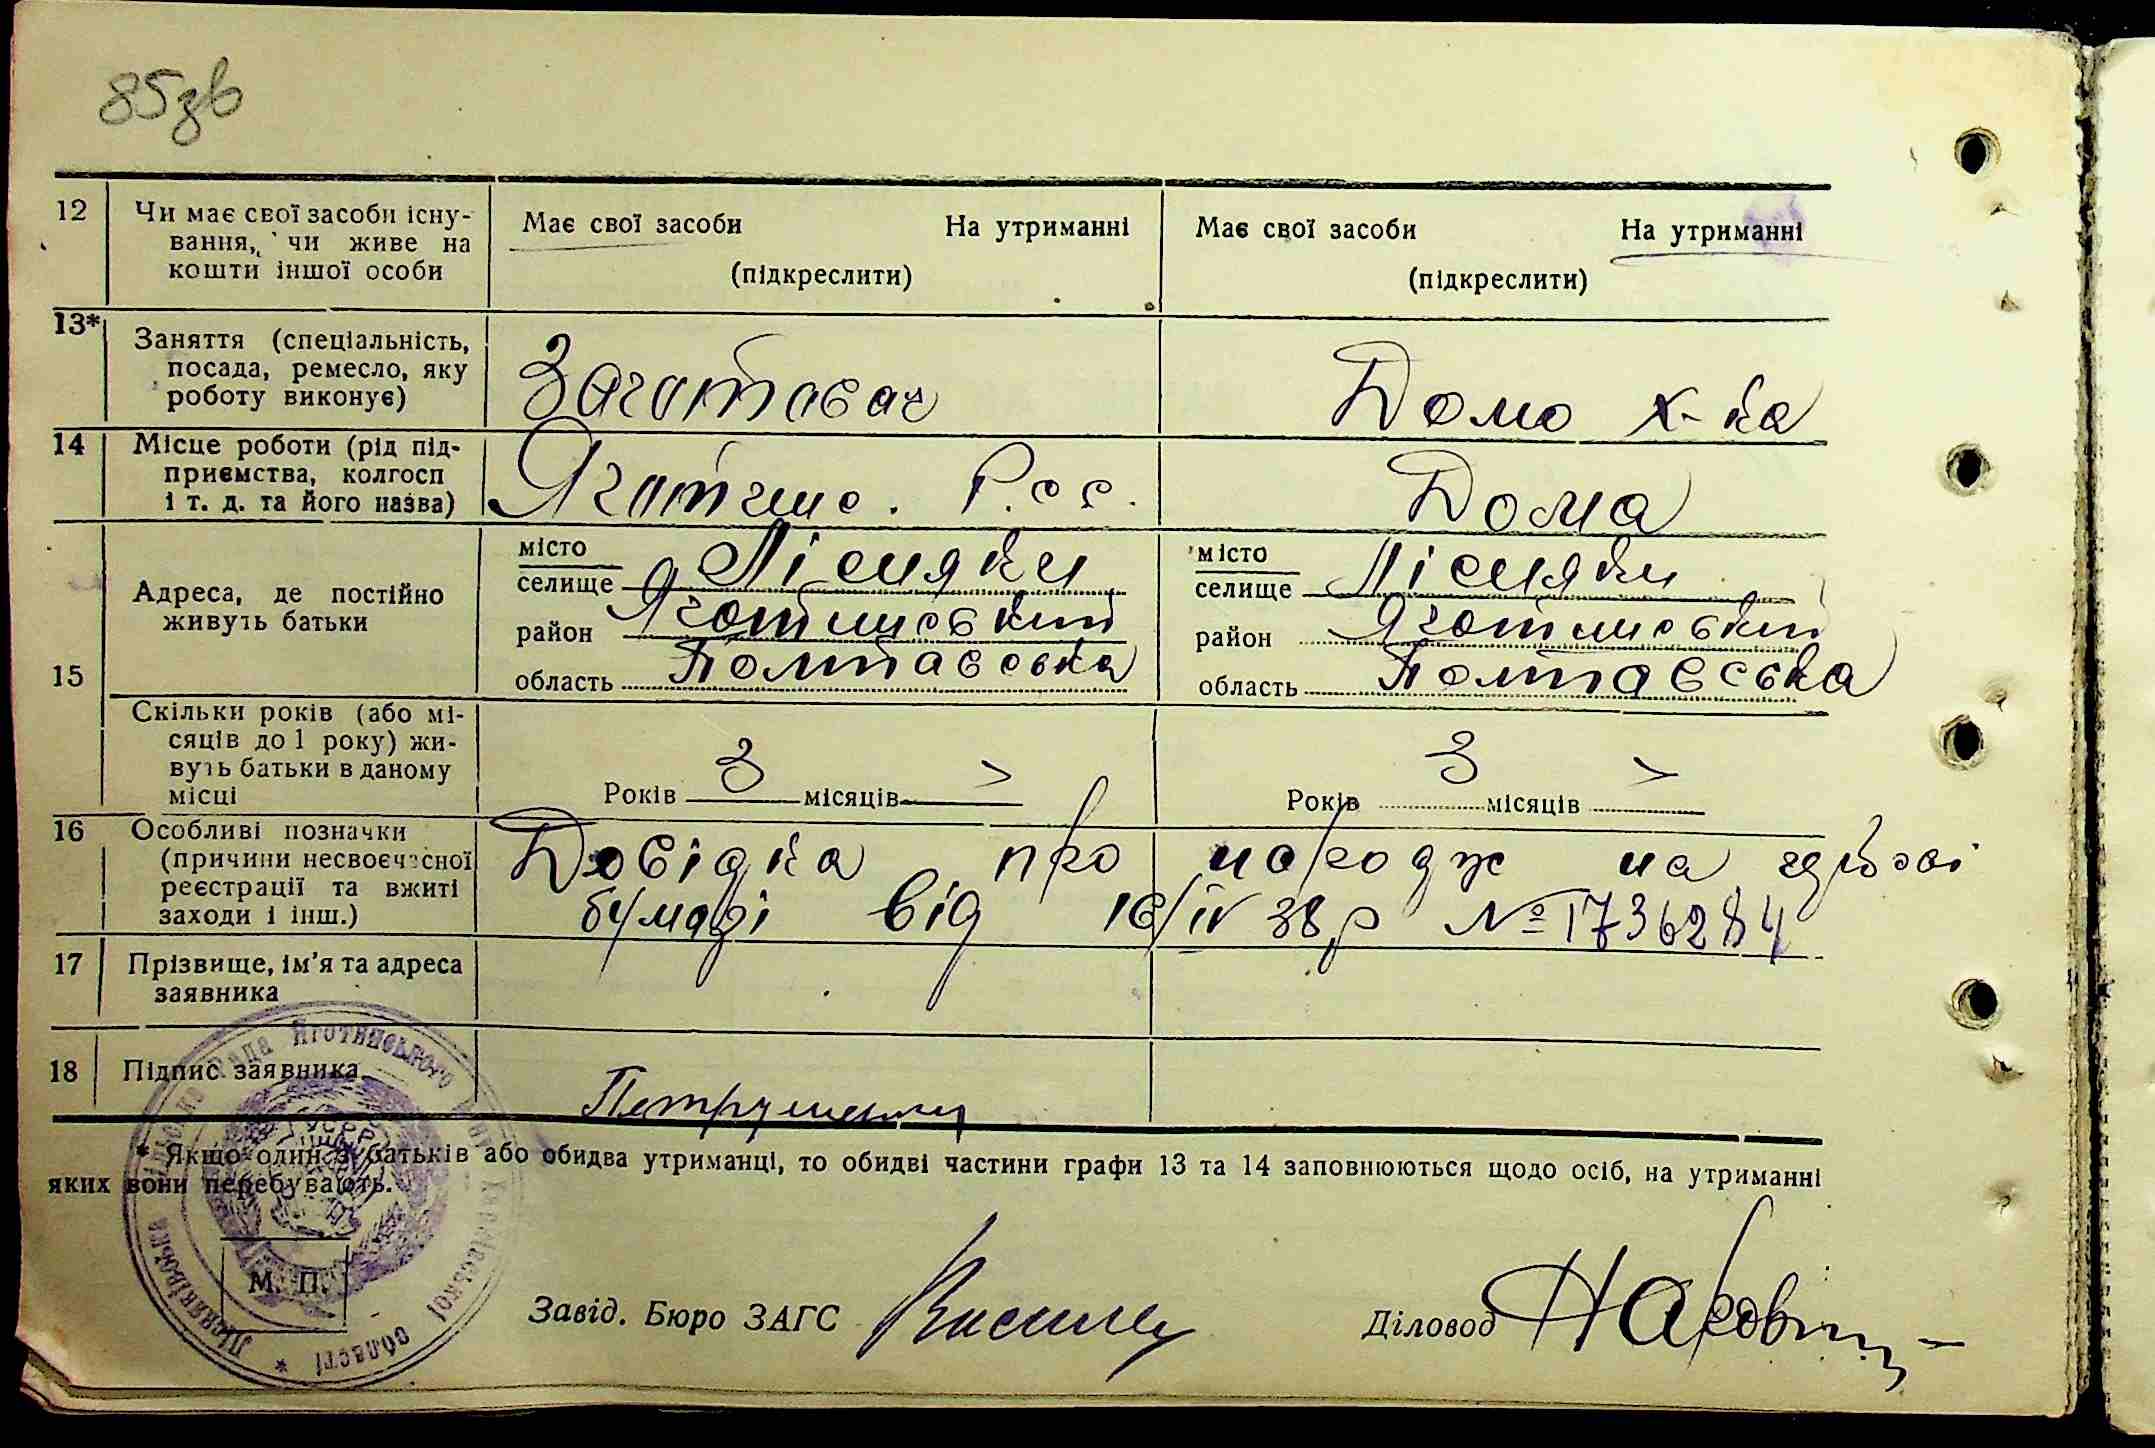 85зв
12 Чи має свої засоби існу-
вання, чи живе на
кошти іншої особи
Має свої засоби На утриманні
(підкреслити)
Має свої засоби На утриманні
(підкреслити)
13* Заняття (спеціальність,
посада, ремесло, яку
роботу виконує)
Заготовач
Домо х-ка
14 Місце роботи (рід під-
приємства, колгосп
і т. д. та його назва)
Яготинс. Р.с.с.
Дома
15 Адреса, де постійно
живуть батьки
місто
селище Лісняки
район Яготинський
область Полтавська
місто
селище Лісняки
район Яготинський
область Полтавська
Скільки років (або мі-
сяців до 1 року) жи-
вуть батьки в даному
місці
Років 3 місяців
Років 3 місяців
16 Особливі позначки
(причини несвоєчасної
реєстрації та вжиті
заходи і інш.)
Довідка про народж на гербові
бумазі від 16/IV 38 р № 1736284
17 Прізвище, ім'я та адреса
заявника
18 Підпис заявника
Петрушенко
* Якщо один з батьків або обидва утриманці, то обидві частини графи 13 та 14 заповнюються щодо осіб, на утриманні
яких вони перебувають.
М. П.
Завід. Бюро ЗАГС
Діловод
Рада Яготинського Харківської області * Лісняківська
УСРР